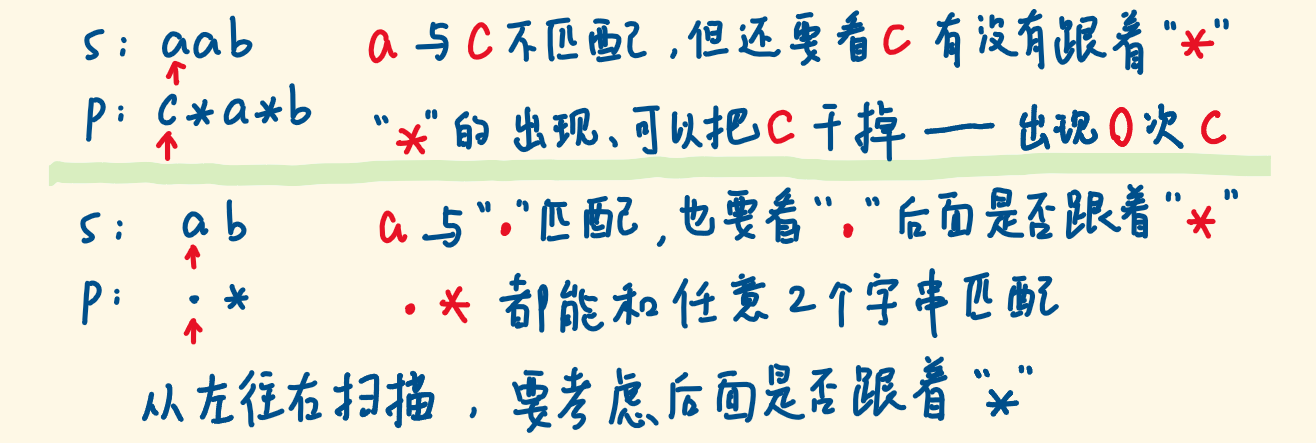 s: aab a与c不匹配,但还要看c有没有跟着"*"
p: c*a*b "*"的出现、可以把c干掉——出现0次c
s: ab a与"."匹配,也要看"."后面是否跟着"*"
p: .* .*都能和任意2个字串匹配
从左往右扫描,要考虑后面是否跟着"*"